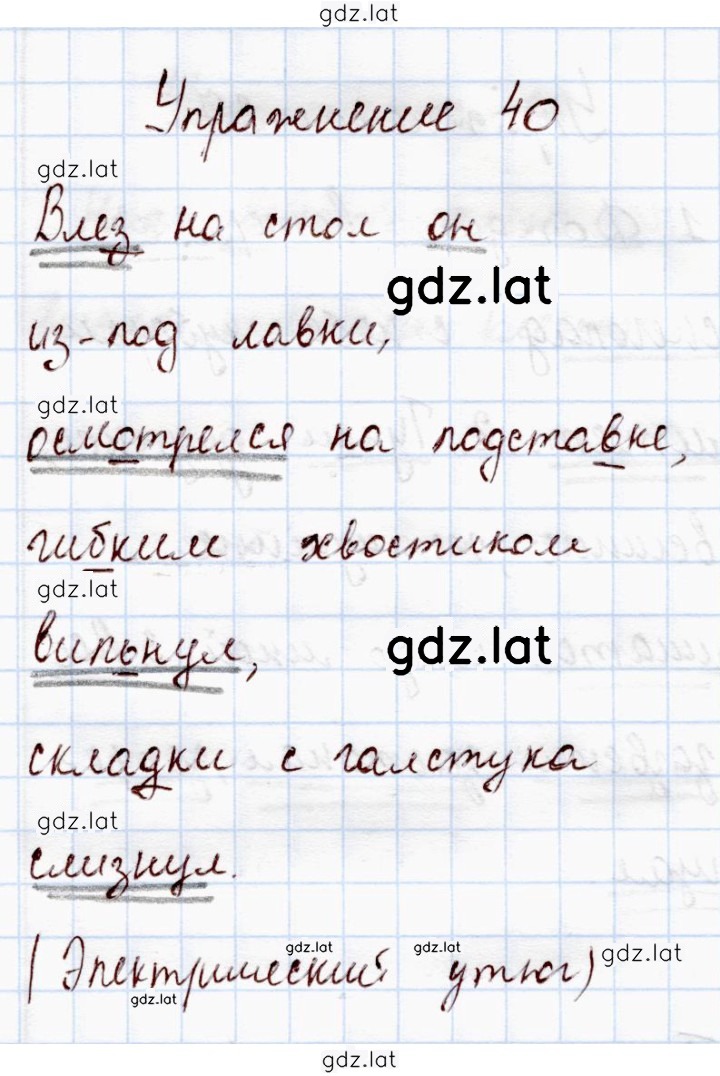 gdz.lat
Упражнение 40
gdz.lat
Влез на стол он
gdz.lat
из-под лавки,
gdz.lat
осмотрелся на подставке,
гибким хвостиком
gdz.lat
вильнул,
gdz.lat
складки с галстука
gdz.lat
слизнул.
gdz.lat
gdz.lat
gdz.lat
(Электрический утюг)
gdz.lat
gdz.lat